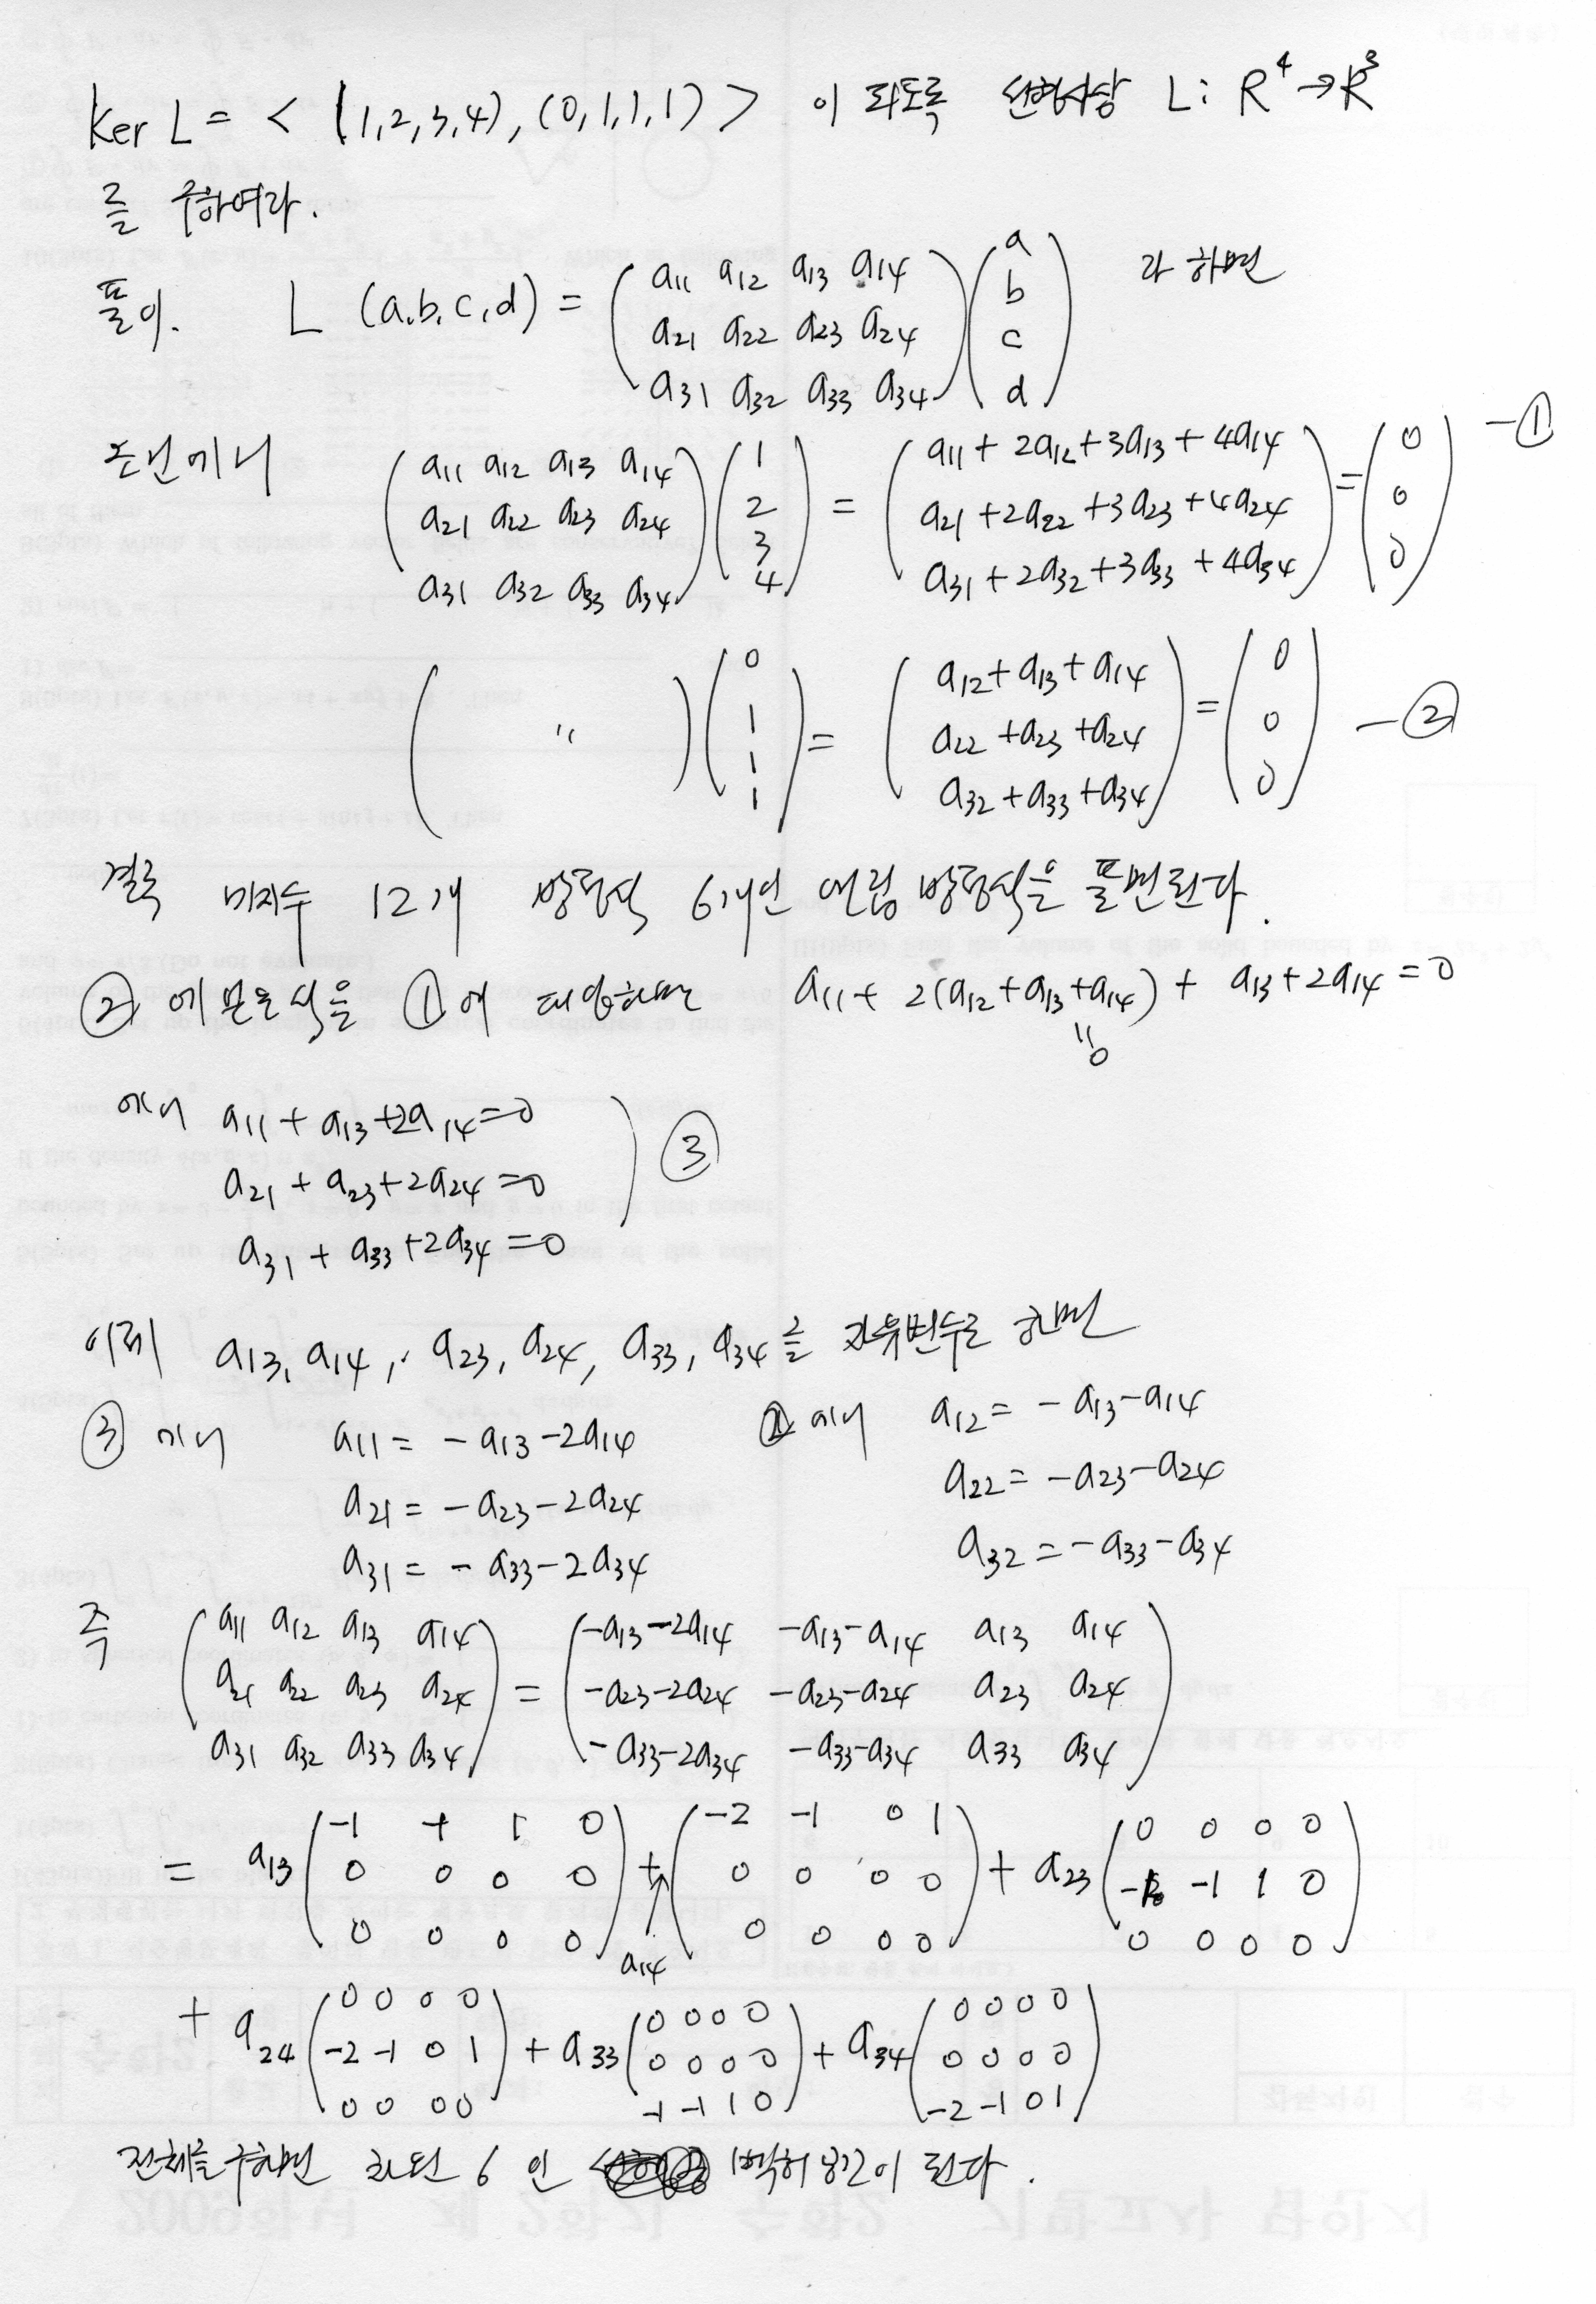 Ker L = < (1,2,3,4), (0,1,1,1) > 이 되도록 선형사상 L: R⁴→R³
를 구하여라.
풀이. L (a,b,c,d) = ( a11 a12 a13 a14 / a21 a22 a23 a24 / a31 a32 a33 a34 ) ( a / b / c / d ) 라 하면
조건에서 ( a11 a12 a13 a14 / a21 a22 a23 a24 / a31 a32 a33 a34 ) ( 1 / 2 / 3 / 4 ) = ( a11 + 2a12 + 3a13 + 4a14 / a21 + 2a22 + 3a23 + 4a24 / a31 + 2a32 + 3a33 + 4a34 ) = ( 0 / 0 / 0 ) -①
( " ) ( 0 / 1 / 1 / 1 ) = ( a12 + a13 + a14 / a22 + a23 + a24 / a32 + a33 + a34 ) = ( 0 / 0 / 0 ) -②
결국 미지수 12개 방정식 6개인 연립 방정식을 풀면된다.
② 에 얻은 식을 ①에 대응하면 a11 + 2(a12 + a13 + a14) + a13 + 2a14 = 0
" 0
에서 a11 + a13 + 2a14 = 0
a21 + a23 + 2a24 = 0 ) ③
a31 + a33 + 2a34 = 0
이제 a13, a14, a23, a24, a33, a34 를 자유변수로 하면
③ 에서 a11 = - a13 - 2a14 ② 에서 a12 = - a13 - a14
a21 = - a23 - 2a24 a22 = - a23 - a24
a31 = - a33 - 2a34 a32 = - a33 - a34
즉 ( a11 a12 a13 a14 / a21 a22 a23 a24 / a31 a32 a33 a34 ) = ( -a13-2a14 -a13-a14 a13 a14 / -a23-2a24 -a23-a24 a23 a24 / -a33-2a34 -a33-a34 a33 a34 )
= a13 ( -1 -1 1 0 / 0 0 0 0 / 0 0 0 0 ) + a14 ( -2 -1 0 1 / 0 0 0 0 / 0 0 0 0 ) + a23 ( 0 0 0 0 / -1 -1 1 0 / 0 0 0 0 )
+ a24 ( 0 0 0 0 / -2 -1 0 1 / 0 0 0 0 ) + a33 ( 0 0 0 0 / 0 0 0 0 / -1 -1 1 0 ) + a34 ( 0 0 0 0 / 0 0 0 0 / -2 -1 0 1 )
전체를 구하면 차원 6 인 벡터 공간이 된다.